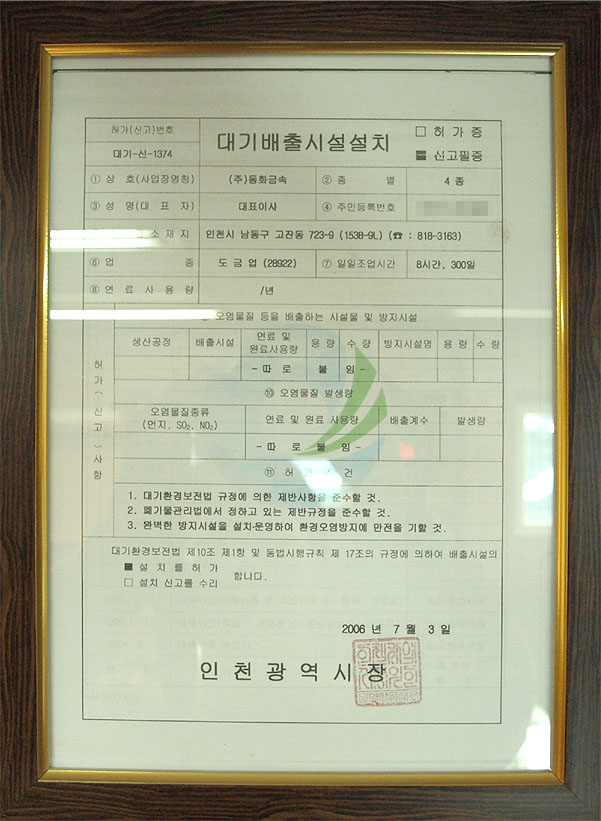 허가(신고)번호
대기-신-1374
대기배출시설설치
□ 허 가 증
■ 신고필증
① 상 호(사업장명칭) (주)동화금속 ② 종 별 4 종
③ 성 명(대 표 자) 대표이사 ④ 주민등록번호
소 재 지 인천시 남동구 고잔동 723-9 (153B-9L) (☎ : 818-3163)
⑥ 업 종 도 금 업 (28922) ⑦ 일일조업시간 8시간, 300일
⑧ 연 료 사 용 량 /년
오염물질 등을 배출하는 시설물 및 방지시설
허 가 ( 신 고 ) 사 항
생산공정 배출시설 연료 및 원료사용량 용 량 수 량 방지시설명 용 량 수 량
- 따 로 붙 임 -
⑩ 오염물질 발생량
오염물질종류 (먼지, SO₂, NO₂) 연료 및 원료 사용량 배출계수 발생량
- 따 로 붙 임 -
⑪ 허 가 조 건
1. 대기환경보전법 규정에 의한 제반사항을 준수할 것.
2. 폐기물관리법에서 정하고 있는 제반규정을 준수할 것.
3. 완벽한 방지시설을 설치·운영하여 환경오염방지에 만전을 기할 것.
대기환경보전법 제10조 제1항 및 동법시행규칙 제 17조의 규정에 의하여 배출시설의
■ 설 치 를 허 가
□ 설치 신고를 수리
합니다.
2006 년 7 월 3 일
인 천 광 역 시 장